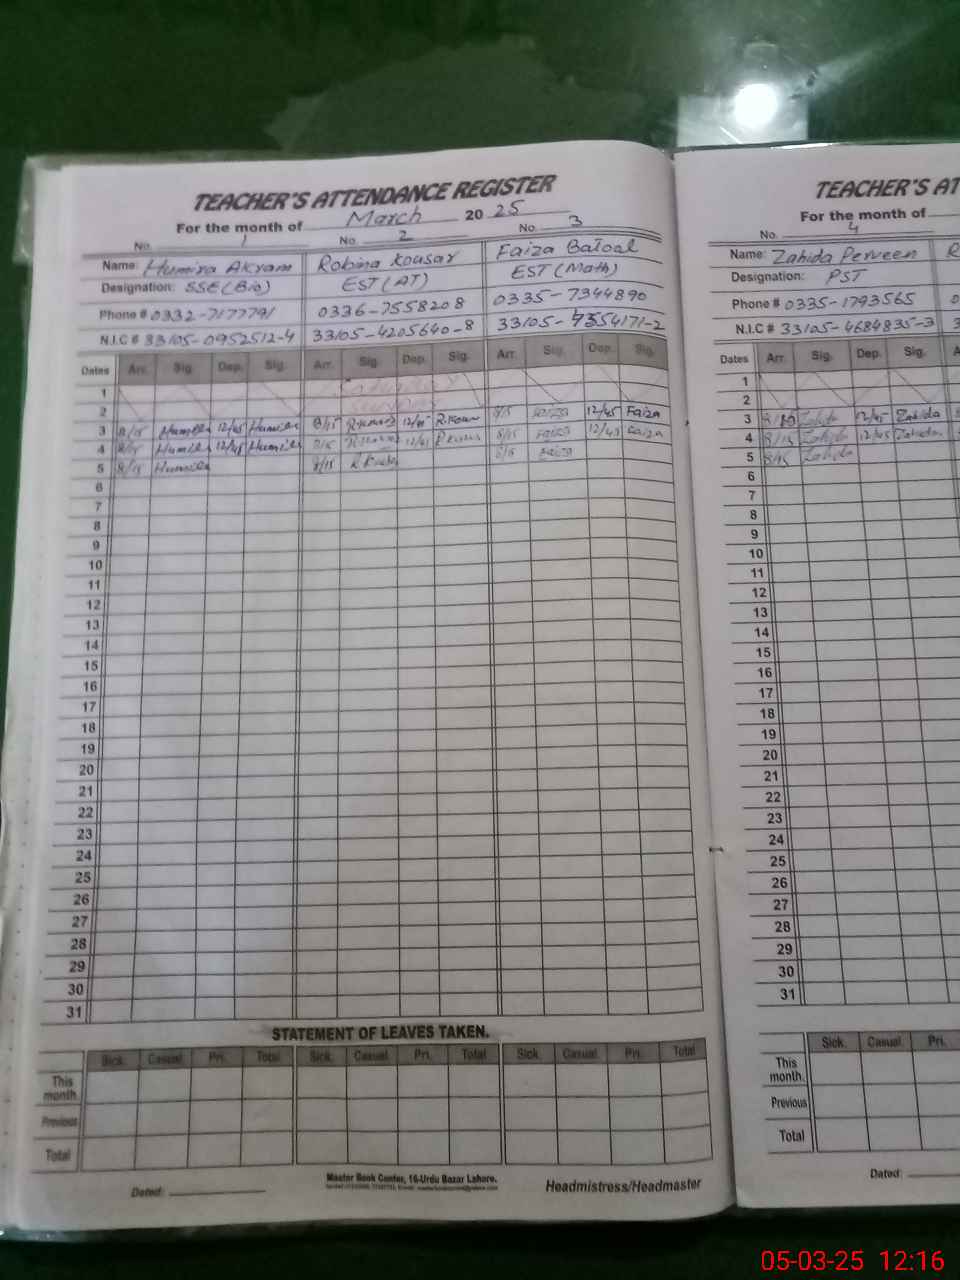 TEACHER'S ATTENDANCE REGISTER
For the month of March 2025
No. 1 No. 2 No. 3
Name: Humira Akram Robina Kousar Faiza Batool
Designation: SSE(Bio) EST(AT) EST(Math)
Phone # 0332-7177791 0336-7558208 0335-7344890
N.I.C # 33105-0952512-4 33105-4205640-8 33105-4354171-2
Dates Arr. Sig. Dep. Sig. Arr. Sig. Dep. Sig. Arr. Sig. Dep. Sig.
1
2
3 8/15 12/45 8/15 12/45 R.Kousar 8/15 Faiza 12/45 Faiza
4 8/15 12/45 8/15 12/45 8/15 Faiza 12/45 Faiza
5 8/15 8/15 8/15 Faiza
6
7
8
9
10
11
12
13
14
15
16
17
18
19
20
21
22
23
24
25
26
27
28
29
30
31
STATEMENT OF LEAVES TAKEN.
Sick. Casual. Pri. Total Sick. Casual. Pri. Total Sick. Casual. Pri. Total
This month.
Previous
Total
Dated:
Master Book Center, 16-Urdu Bazar Lahore.
Headmistress/Headmaster
TEACHER'S AT
For the month of
No. 4
Name: Zahida Perveen R
Designation: PST
Phone # 0335-1793565
N.I.C # 33105-4684835-3 3
Dates Arr. Sig. Dep. Sig. A
1
2
3 8/10 Zahida 12/45 Zahida
4 8/15 Zahida 12/45 Zahida
5 8/15 Zahida
6
7
8
9
10
11
12
13
14
15
16
17
18
19
20
21
22
23
24
25
26
27
28
29
30
31
Sick. Casual. Pri.
This month.
Previous
Total
Dated:
05-03-25 12:16